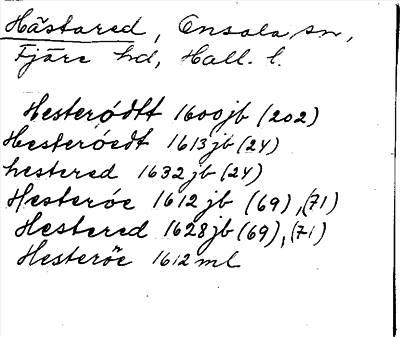 Hästared, Onsala sn,
Fjäre hd, Hall. l.
Hesterödtt 1600jb (202)
Hesteröedt 1613jb (24)
hestered 1632jb (24)
Hesteröe 1612jb (69), (71)
Hestered 1628jb (69), (71)
Hesteröe 1612ml